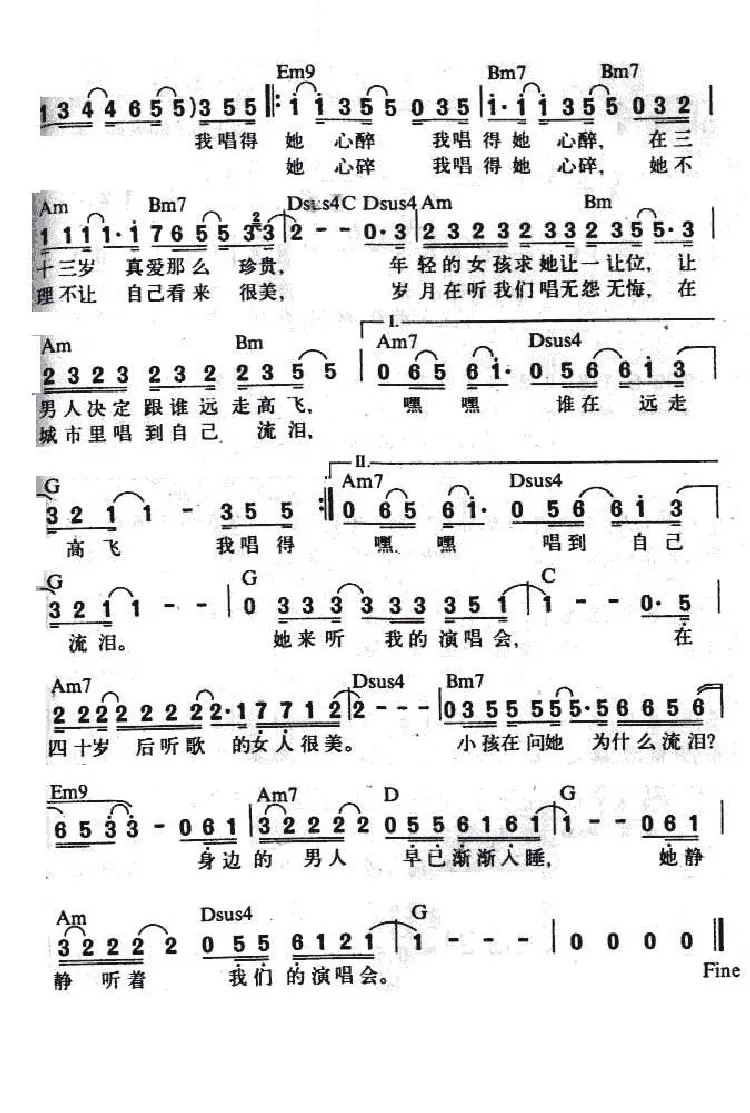 Em9 Bm7 Bm7
1 3 4 4 6 5 5) 3 5 5 ‖: i i 3 5 5 0 3 5 | i· i i 3 5 5 0 3 2 |
我唱得 她 心醉 我唱 得她 心醉, 在三
她 心碎 我唱得 她 心碎, 她不
Am Bm7 Dsus4 C Dsus4 Am Bm
1 1 1 1· i 7 6 5 5 3 3 | 2 - - 0· 3 | 2 3 2 3 2 3 2 2 3 5 5· 3 |
十三岁 真爱那么 珍贵, 年轻的女孩求她让一让位, 让
理不让 自己看来 很美, 岁月在听我们唱无怨无悔, 在
I.
Am Bm Am7 Dsus4
2 3 2 3 2 3 2 2 3 5 5 | 0 6 5 6 i· 0 5 6 6 i 3
男人决定 跟谁 远 走高飞, 嘿 嘿 谁在 远走
城市里唱 到自己 流泪,
II.
G Am7 Dsus4
3 2 1 1 - 3 5 5 :‖ 0 6 5 6 i· 0 5 6 6 i 3
高飞 我唱得 嘿 嘿 唱到 自己
G G C
3 2 1 1 - - | 0 3 3 3 3 3 3 3 5 1 | 1 - - 0· 5 |
流泪。 她来听 我的演唱会, 在
Am7 Dsus4 Bm7
2 2 2 2 2 2 2 2· 1 7 7 1 2 | 2 - - - | 0 3 5 5 5 5 5 5· 5 6 6 5 6
四十岁 后听歌 的女人很美。 小孩在问她 为什么流泪?
Em9 Am7 D G
6 5 3 3 - 0 6 1 | 3 2 2 2 2 0 5 5 6 1 6 1 | 1 - - 0 6 1 |
身边的 男人 早已渐渐入睡, 她静
Am Dsus4 G
3 2 2 2 2 0 5 5 6 1 2 1 | 1 - - - | 0 0 0 0 ‖
静 听着 我们 的演唱会。
Fine